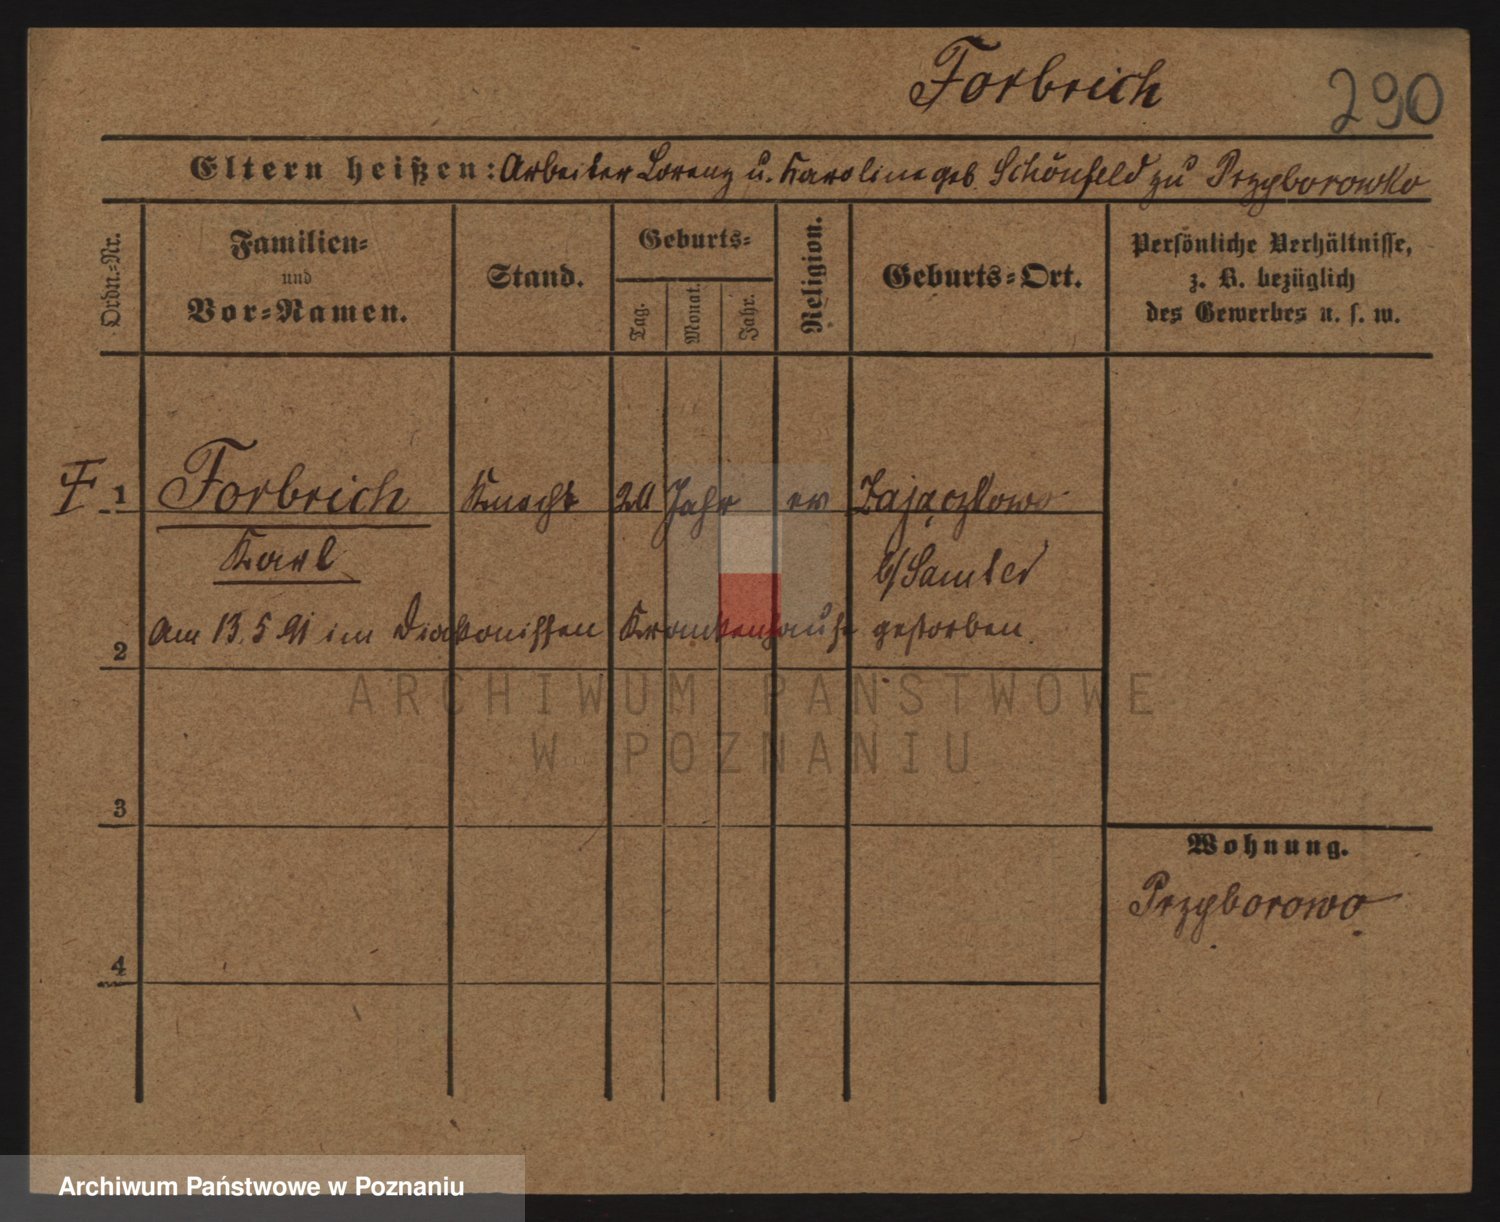 Forbrich
290
Eltern heißen: Arbeiter Lorenz u. Karoline geb. Schönfeld zu Przyborowko
Ordn.-Nr.
Familien-
und
Vor-Namen.
Stand.
Geburts-
Tag.
Monat.
Jahr.
Religion.
Geburts-Ort.
Persönliche Verhältnisse,
z. B. bezüglich
des Gewerbes u. s. w.
1 Forbrich Knecht 20 Jahr ev Zajączkowo
Karl b/Samter
am 13.5.91 im Diakonissen Krankenhause gestorben.
2
3
4
Wohnung.
Przyborowo
ARCHIWUM PAŃSTWOWE
W POZNANIU
Archiwum Państwowe w Poznaniu